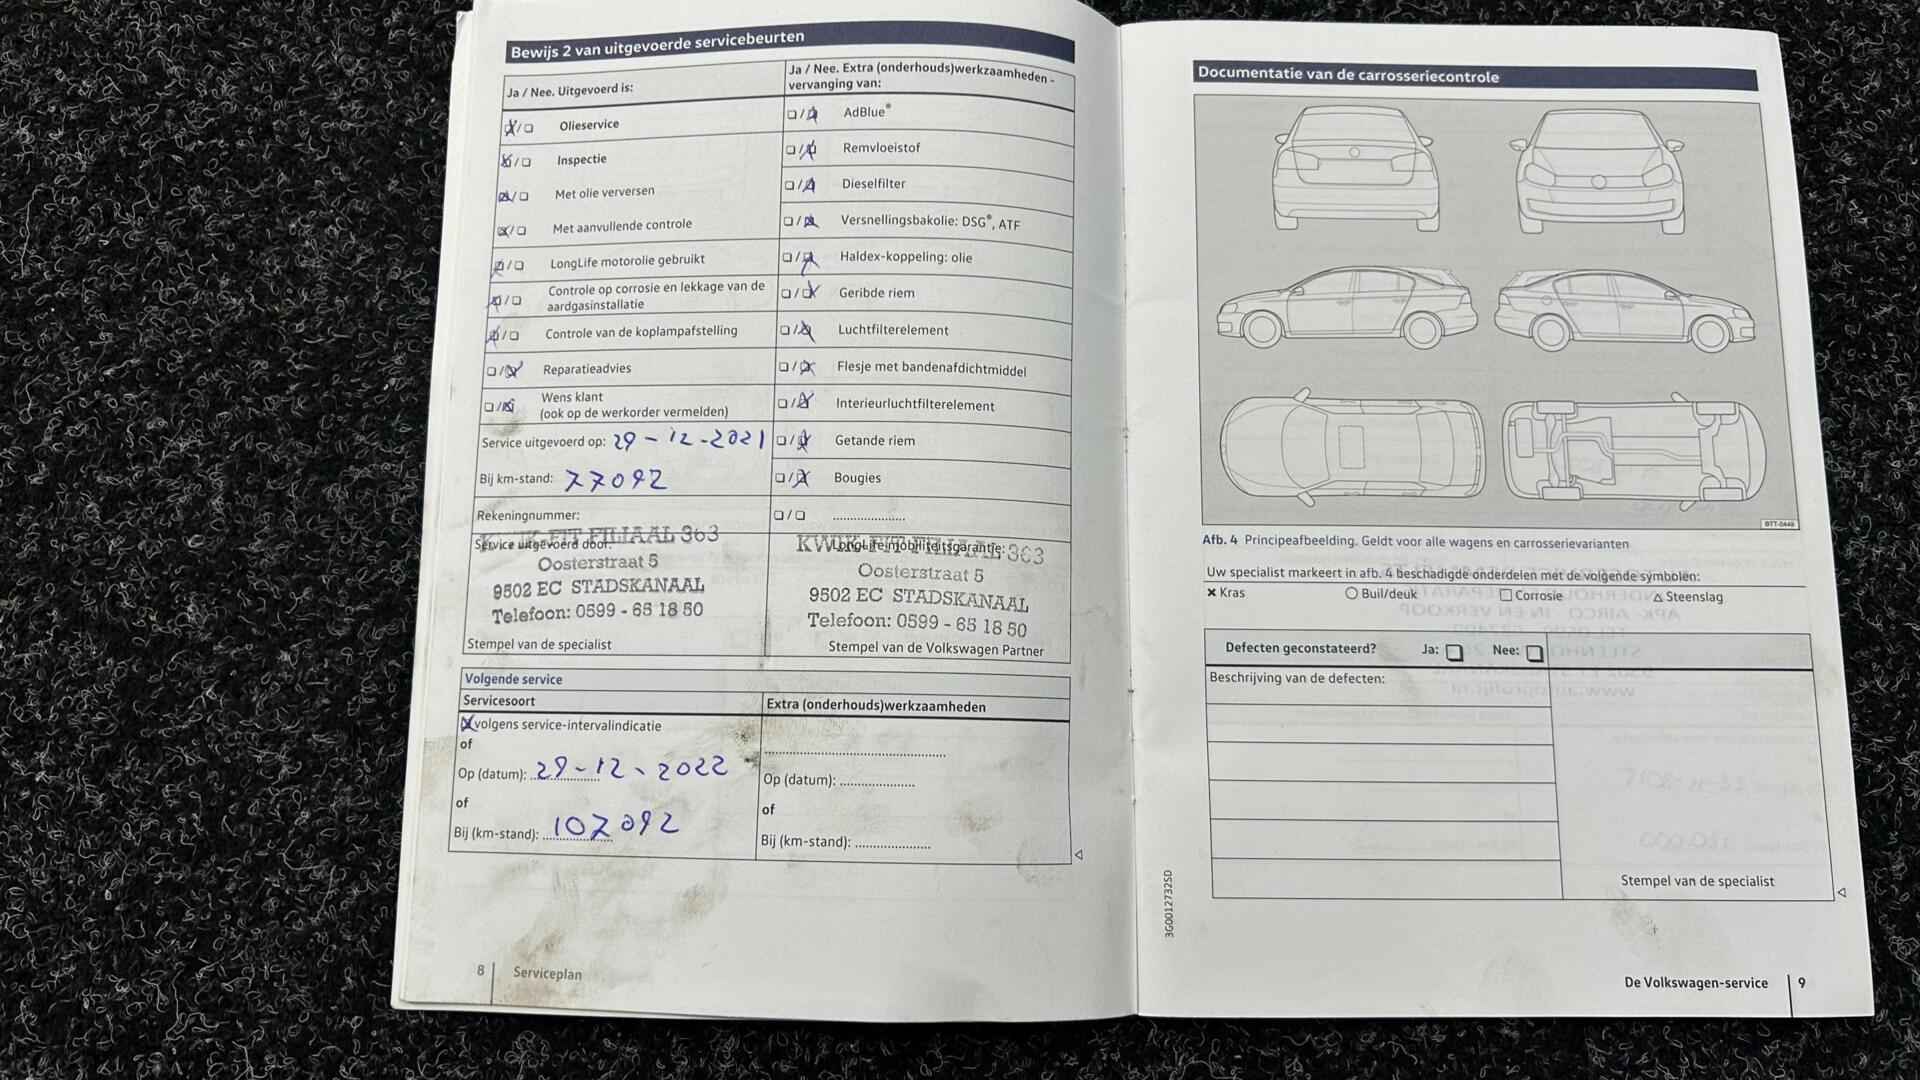 Bewijs 2 van uitgevoerde servicebeurten
Ja / Nee. Uitgevoerd is:
Olieservice
Inspectie
Met olie verversen
Met aanvullende controle
LongLife motorolie gebruikt
Controle op corrosie en lekkage van de
aardgasinstallatie
Controle van de koplampafstelling
Reparatieadvies
Wens klant
(ook op de werkorder vermelden)
Service uitgevoerd op: 29-12-2021
Bij km-stand: 77092
Rekeningnummer:
Service uitgevoerd door:
KWIK-FIT FILIAAL 363
Oosterstraat 5
9502 EC STADSKANAAL
Telefoon: 0599 - 65 18 50
Stempel van de specialist
Ja / Nee. Extra (onderhouds)werkzaamheden -
vervanging van:
AdBlue®
Remvloeistof
Dieselfilter
Versnellingsbakolie: DSG®, ATF
Haldex-koppeling: olie
Geribde riem
Luchtfilterelement
Flesje met bandenafdichtmiddel
Interieurluchtfilterelement
Getande riem
Bougies
....................
LongLife-mobiliteitsgarantie:
KWIK-FIT FILIAAL 363
Oosterstraat 5
9502 EC STADSKANAAL
Telefoon: 0599 - 65 18 50
Stempel van de Volkswagen Partner
Volgende service
Servicesoort
volgens service-intervalindicatie
of
Op (datum): 29-12-2022
of
Bij (km-stand): 107092
Extra (onderhouds)werkzaamheden
Op (datum): ....................
of
Bij (km-stand): ....................
8 Serviceplan
Documentatie van de carrosseriecontrole
BTT-0449
Afb. 4 Principeafbeelding. Geldt voor alle wagens en carrosserievarianten
Uw specialist markeert in afb. 4 beschadigde onderdelen met de volgende symbolen:
× Kras ○ Buil/deuk □ Corrosie △ Steenslag
Defecten geconstateerd? Ja: Nee:
Beschrijving van de defecten:
Stempel van de specialist
3G0012732SD
De Volkswagen-service 9